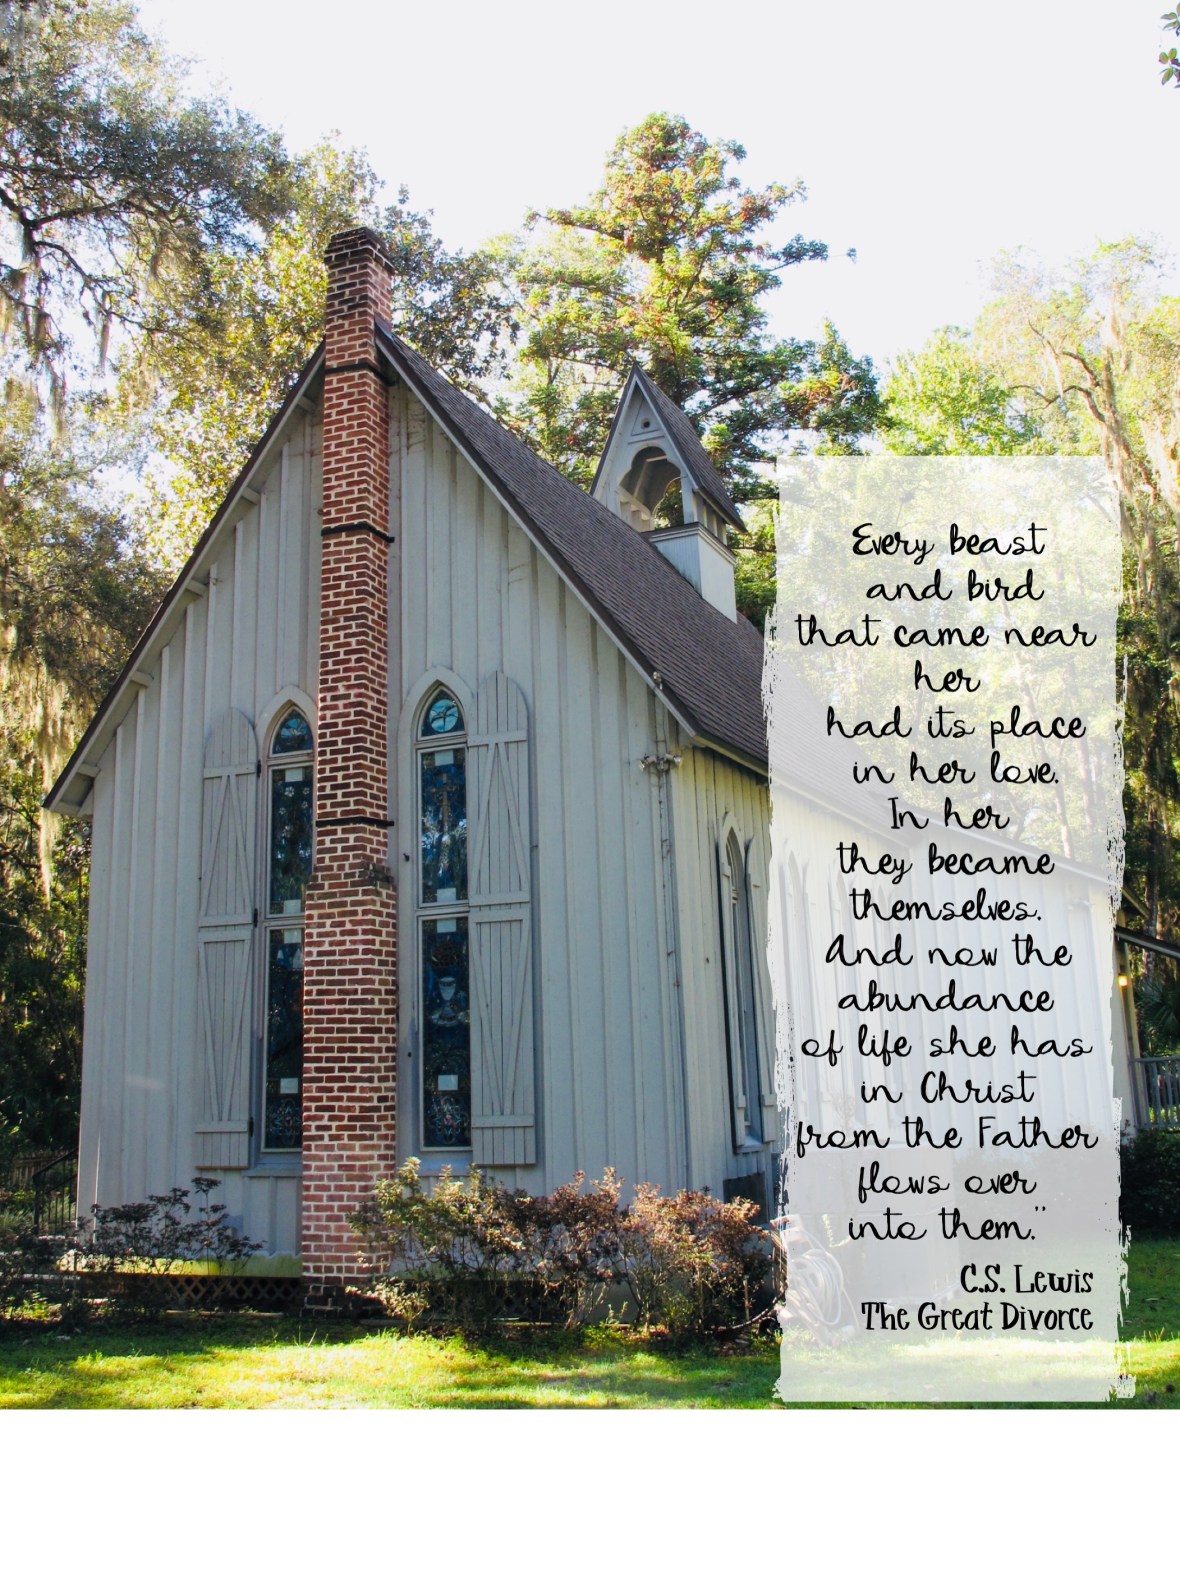 Every beast
and bird
that came near
her
had its place
in her love.
In her
they became
themselves.
And now the
abundance
of life she has
in Christ
from the Father
flows over
into them."
C.S. Lewis
The Great Divorce